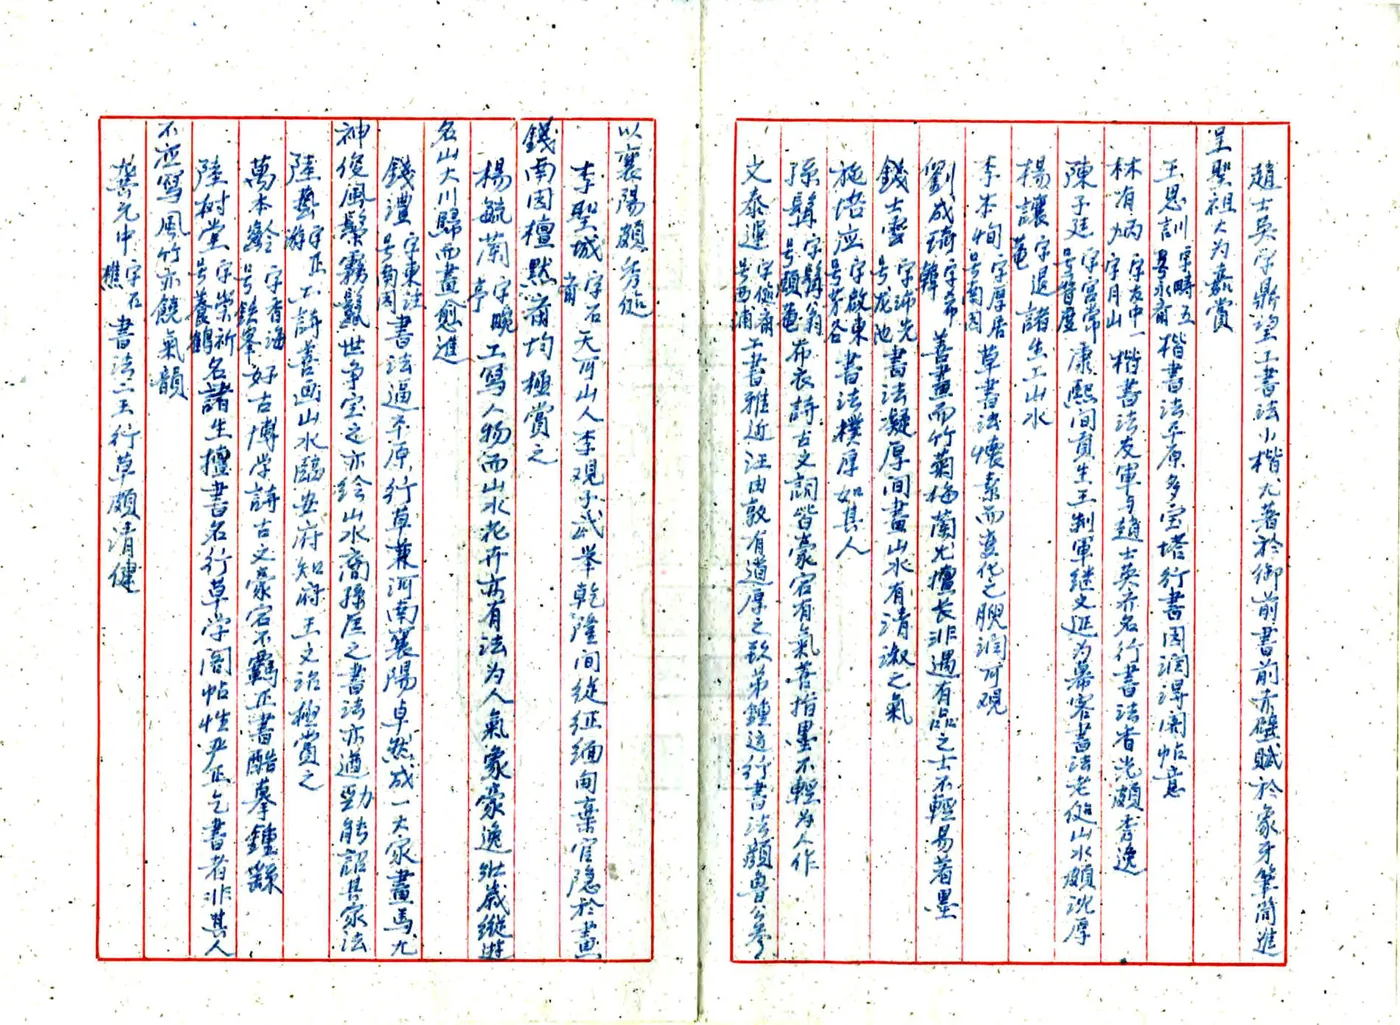 趙士英字鼎望工書法小楷尤著於御前書前赤壁賦於象牙筆筒進
呈聖祖大为嘉賞
王思訓字疇五号永齋楷書法平原多宝塔行書圆润得閣帖意
林有炳字友中一字月山楷書法友軍与趙士英亦名行書法香光頗秀逸
陳予廷字宫常号皆度康熙间貢生王制軍继文延为幕客書法老健山水頗沈厚
楊讓字退菴諸生工山水
李本恂字厚居号南园草書法懷素而真仿之腴润可观
劉成琦字希韓善畫而竹菊梅蘭尤擅长非遇有品之士不輕易着墨
錢士雲字沛先号龙池書法凝厚间畫山水有清淑之氣
施培应字啟東号芳谷書法樸厚如其人
孫髯字髯翁号頤菴布衣詩古文詞皆豪宕有氣善指墨不輕为人作
文泰運字極齋号西浦工書雅近汪由敦有遒厚之致弟鍾运行書法顏魯公參
以襄陽頗秀俊
李聖城字石齋天可山人李观子武举乾隆间從征缅甸棄官隐於畫
錢南园檀默齋均極賞之
楊毓蘭字晚亭工写人物而山水花卉亦有法为人氣象豪逸壮歲縱遊
名山大川歸而畫愈進
錢灃字東注号南园書法逼平原行草兼河南襄陽卓然成一大家畫馬尤
神俊風鬃霧鬣世争宝之亦绘山水裔孫匡之書法亦遒勁能詔其家法
陸藝字正游工詩善画山水臨安府知府王文治極賞之
萬本齡字香海号鉄峯好古博学詩古文豪宕不羈正書酷摹鍾繇
陸树堂字柴祈号養鶴名諸生擅書名行草学閣帖性严正乞書者非其人
不应写風竹亦饒氣韻
龚元中字石樵書法二王行草頗清健